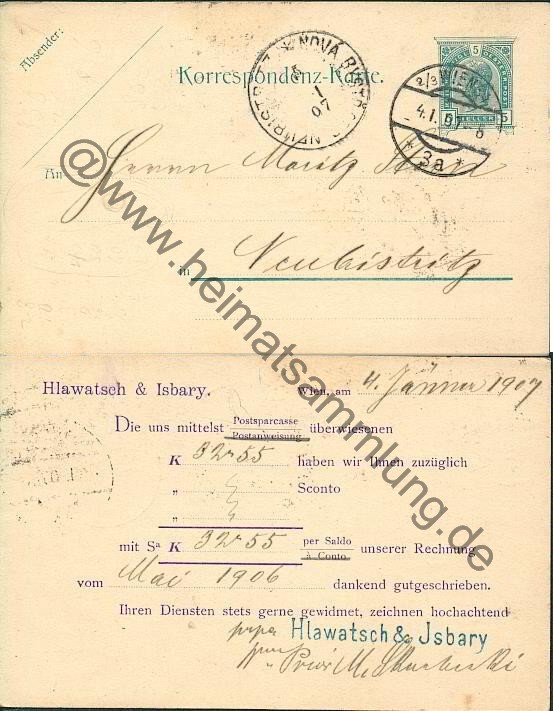 Absender:
Korrespondenz-Karte.
5
HELLER
5
NOVÁ
NEUBISTRITZ
1
07
2/3 WIEN
4.I.07
* 3a *
An Herrn Moritz
in Neubistritz
@www.heimatsammlung.de
Hlawatsch & Isbary.
Wien, am 4. Jänner 1907
Die uns mittelst Postsparcasse
Postanweisung überwiesenen
K 32.55 haben wir Ihnen zuzüglich
„ Sconto
„
mit Sa K 32.55 per Saldo
à Conto unserer Rechnung
vom Mai 1906 dankend gutgeschrieben.
Ihren Diensten stets gerne gewidmet, zeichnen hochachtend
ppa Hlawatsch & Jsbary